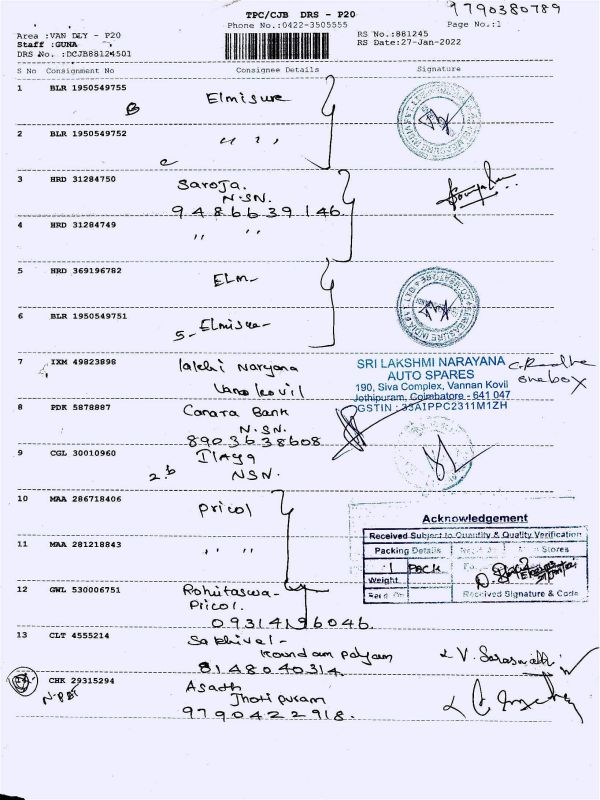 9790380789
TPC/CJB DRS - P20
Phone No.:0422-3505555
Page No.:1
Area :VAN DLY - P20
Staff :GUNA
DRS No. :DCJB88124501
RS No.:881245
RS Date:27-Jan-2022
S No Consignment No Consignee Details Signature
1 BLR 1950549755 Elmisure
B
2 BLR 1950549752 " " "
3 HRD 31284750 Saroja.
N.SN.
9486639146.
4 HRD 31284749 " "
5 HRD 369196782 ELM-
6 BLR 1950549751
5-Elmisure-
7 IXM 49823898 lakshi Naryana
Vanakovil
SRI LAKSHMI NARAYANA
AUTO SPARES
190, Siva Complex, Vannan Kovil
Jothipuram, Coimbatore - 641 047
GSTIN : 33AIPPC2311M1ZH
one box
8 PDK 5878887 Canara Bank
N.SN.
8903638608
9 CGL 30010960 Ilaya
NSN.
10 MAA 286718406 Pricol
11 MAA 281218843 " "
Acknowledgement
Received Subject to Quantity & Quality Verification
Packing Details Stores
1 PACK
Weight
Received Signature & Code
12 GWL 530006751 Rohitaswa-
Pricol.
09314196046.
13 CLT 4555214 Sakhival-
Koundam palyam
8148040314
V. Saraswathi
14 CHK 29315294 Asadh
Jhoti puram
9790422918.